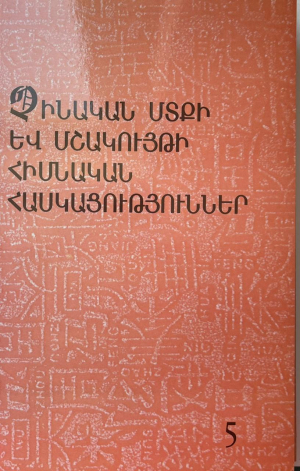 ՉԻՆԱԿԱՆ ՄՏՔԻ
ԵՎ ՄՇԱԿՈՒՅԹԻ
ՀԻՄՆԱԿԱՆ
ՀԱՍԿԱՑՈՒԹՅՈՒՆՆԵՐ
5